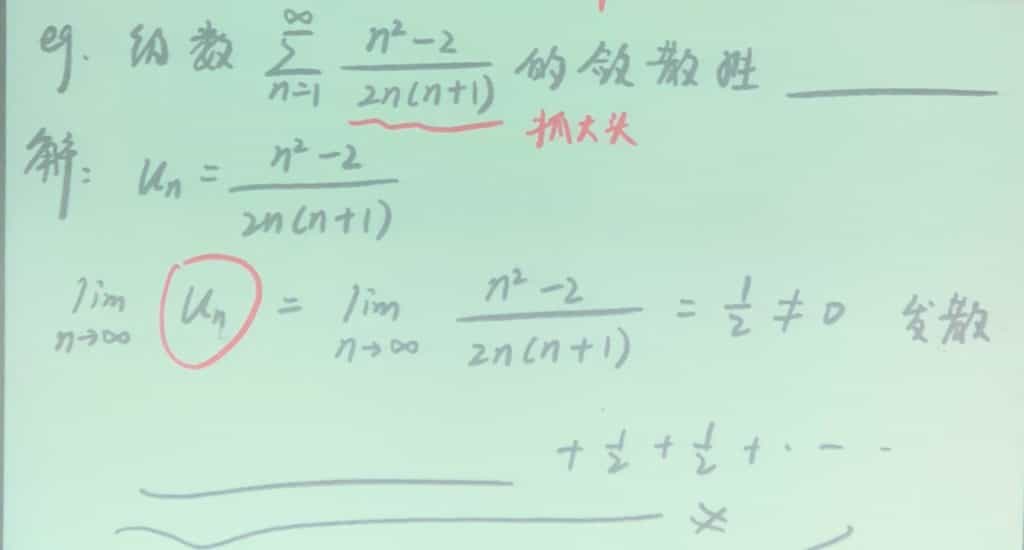 eg. 级数 ∑_{n=1}^{∞} \frac{n²-2}{2n(n+1)} 的敛散性 ______
抓大头
解: Uₙ = \frac{n²-2}{2n(n+1)}
lim_{n→∞} Uₙ = lim_{n→∞} \frac{n²-2}{2n(n+1)} = \frac{1}{2} ≠ 0 发散
+ \frac{1}{2} + \frac{1}{2} + · - -